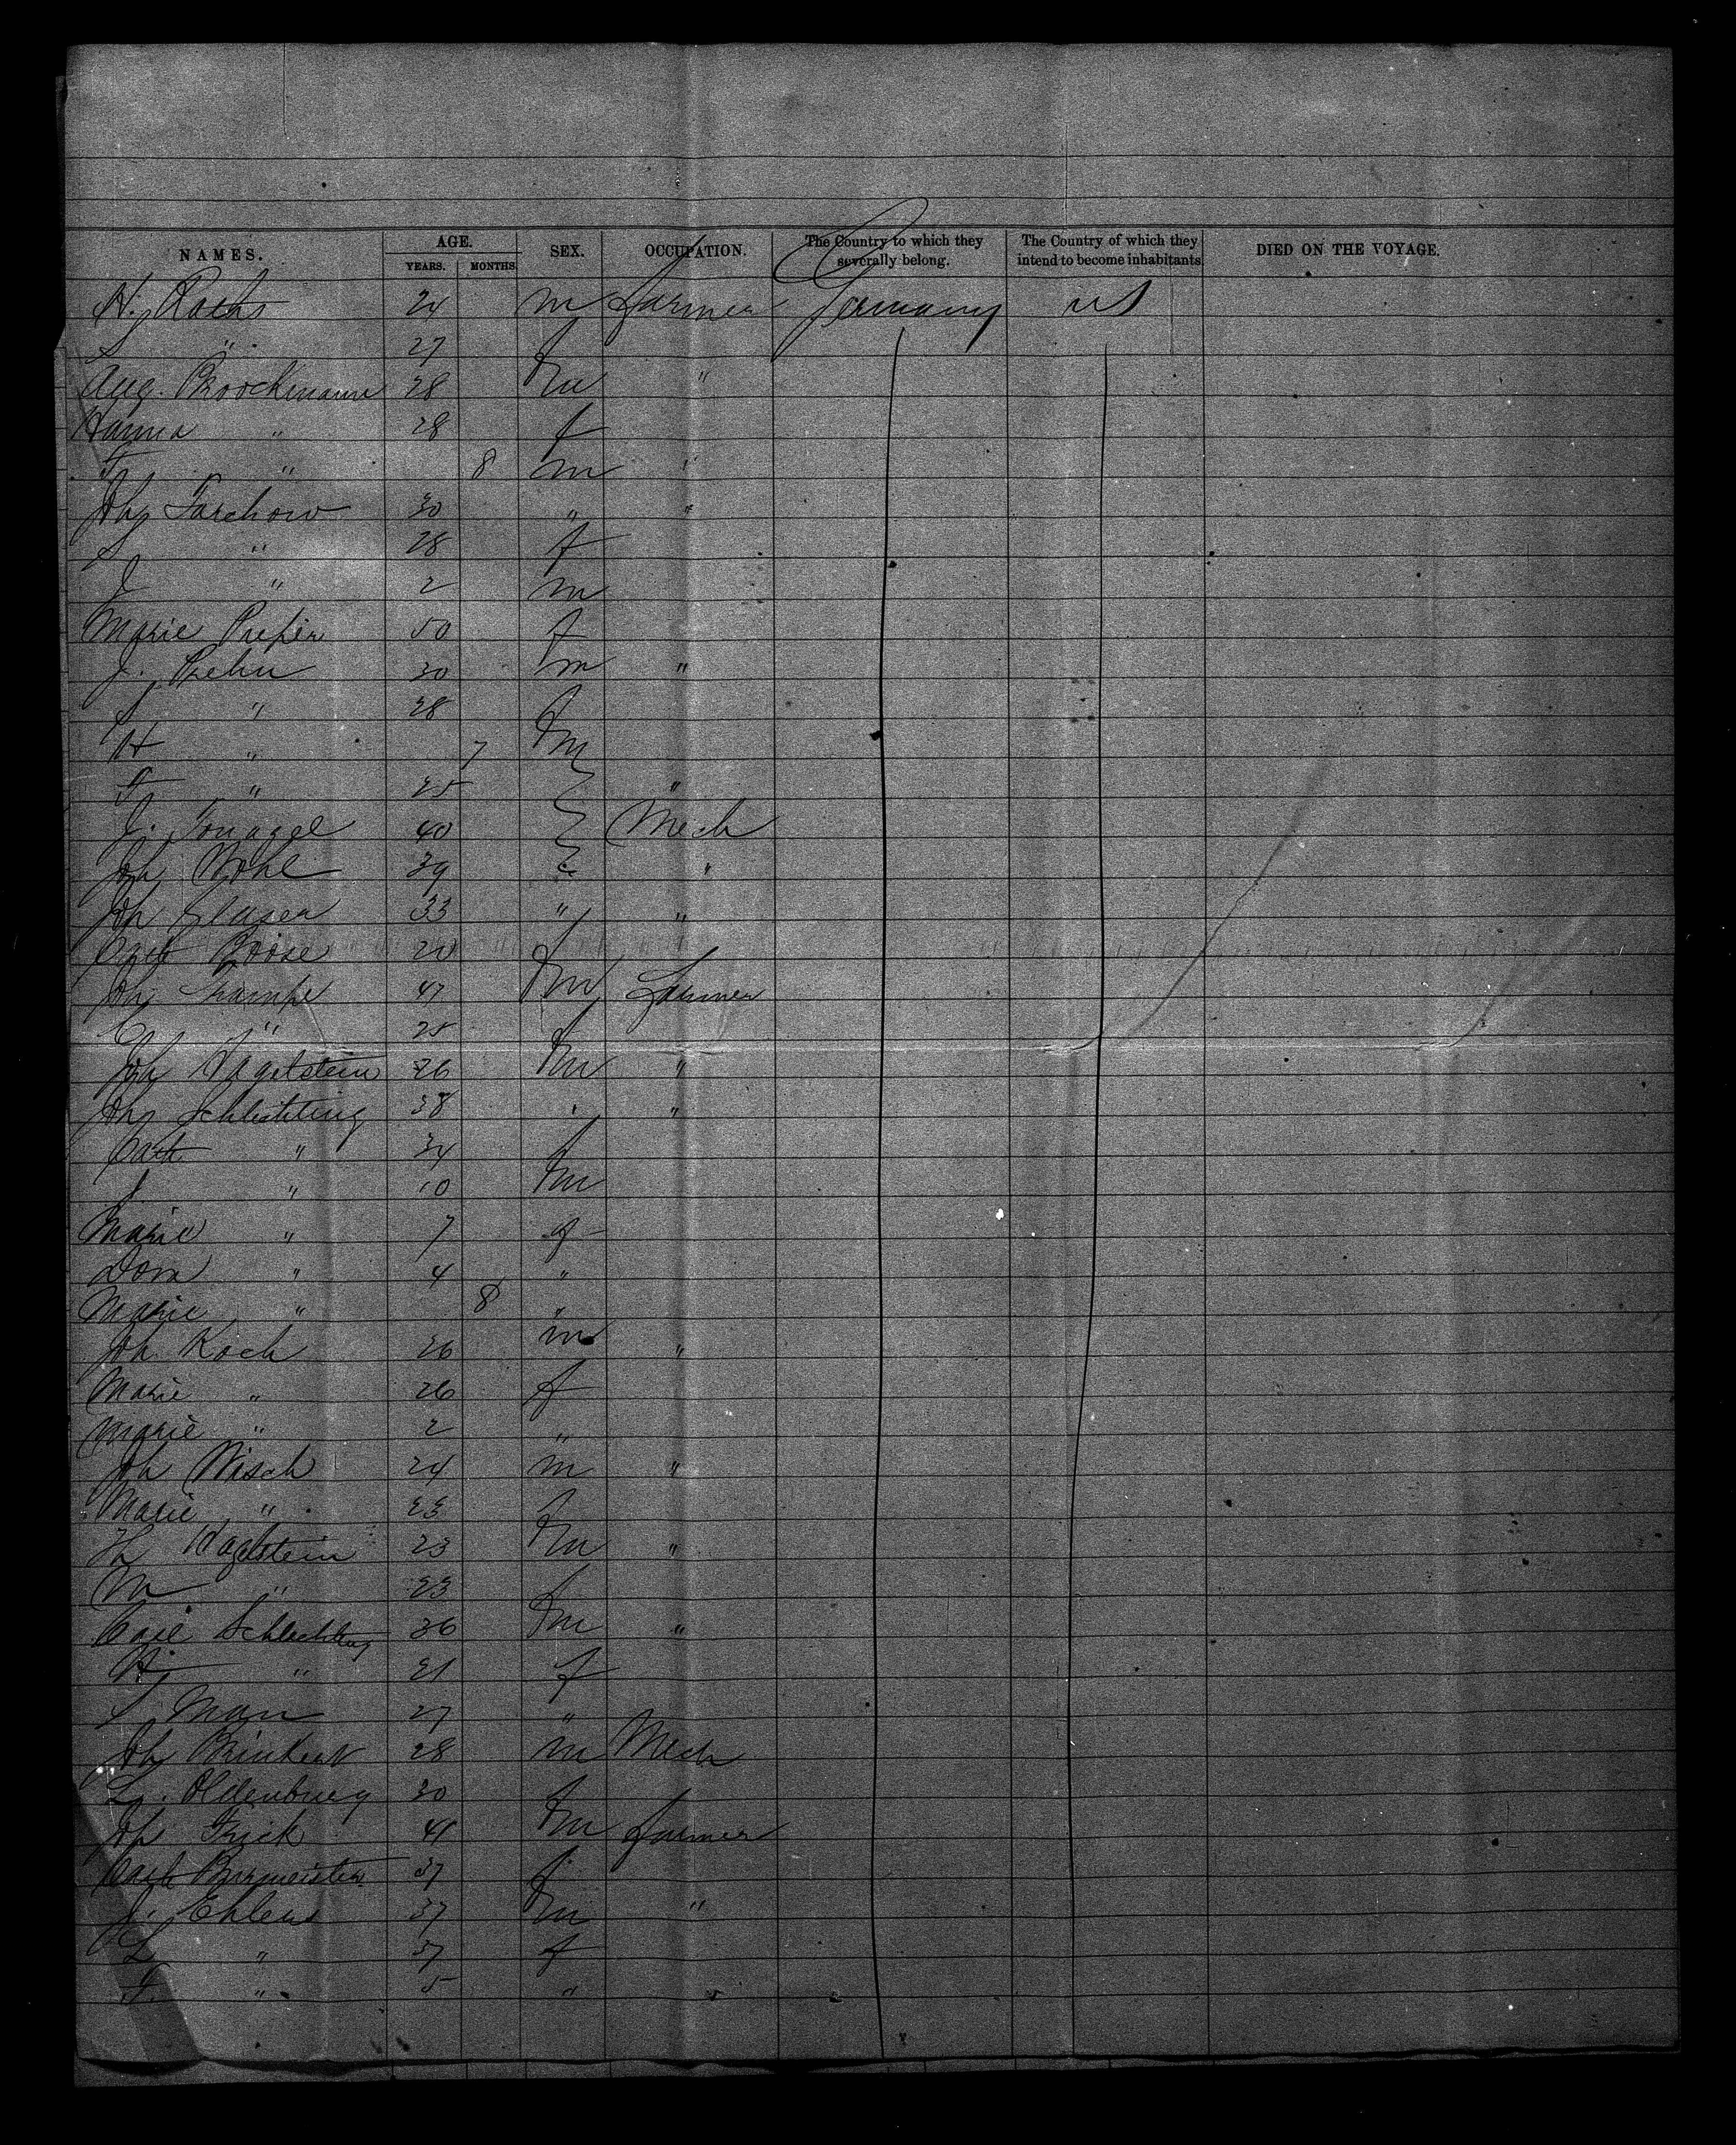 NAMES. AGE. YEARS. MONTHS. SEX. OCCUPATION. The Country to which they severally belong. The Country of which they intend to become inhabitants DIED ON THE VOYAGE.
H. Raths 24 m farmer Germany US
S " 27 f
Aug. Broockmann 28 m "
Hanna " 28 f
F " 8 m "
Joh Tarchow 30 " "
S " 28 f
J " 2 m
Marie Prefin 50 f
J. Prehn 30 m "
S " 28 f
H " 7 m
F " 25 "
J. 40 Mech
Joh Wohl 39 " "
Joh Glaser 33 " "
Cath Boose 20 f
Joh Trampe 47 m Farmer
C " 25 f
Joh Hagelstein 26 m "
Joh Schlichting 38 " "
Cath " 34 f
J. " 10 m
Marie " 7 f
Dora " 4 "
Marie " 8 "
Joh Koch 26 m "
Marie " 26 f
Marie " 2 "
Joh Wisch 24 m "
Marie " 23 f
H Hagelstein 23 m "
M " 23 f
Carl Schlichting 36 m "
H " 21 f
S. Mau 27 "
Joh Brinkert 28 m Mech
L. Oldenburg 30 f
Joh Frick 41 m farmer
Cath Burmeister 37 f
J. Ehlers 37 m "
L " 37 f
F. " 5 " "